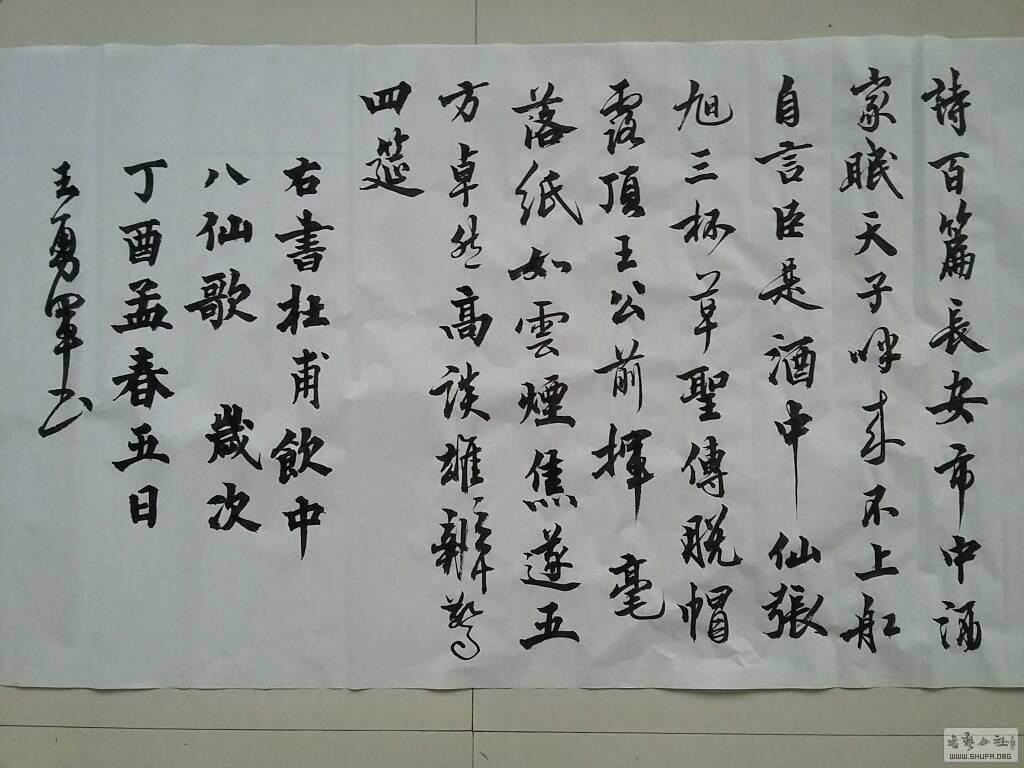 詩百篇長安市中酒
家眠天子呼来不上船
自言臣是酒中仙張
旭三杯草聖傳脱帽
露頂王公前揮毫
落紙如雲煙焦遂五
方卓然高談雄辯驚
四筵
右書杜甫飲中
八仙歌 歲次
丁酉孟春五日
王勇軍书
書藝公社
WWW.SHUFA.ORG